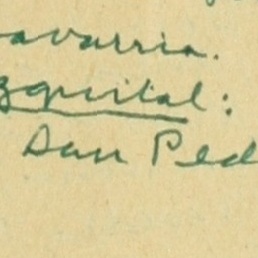 avarria.
zquital:
San Ped